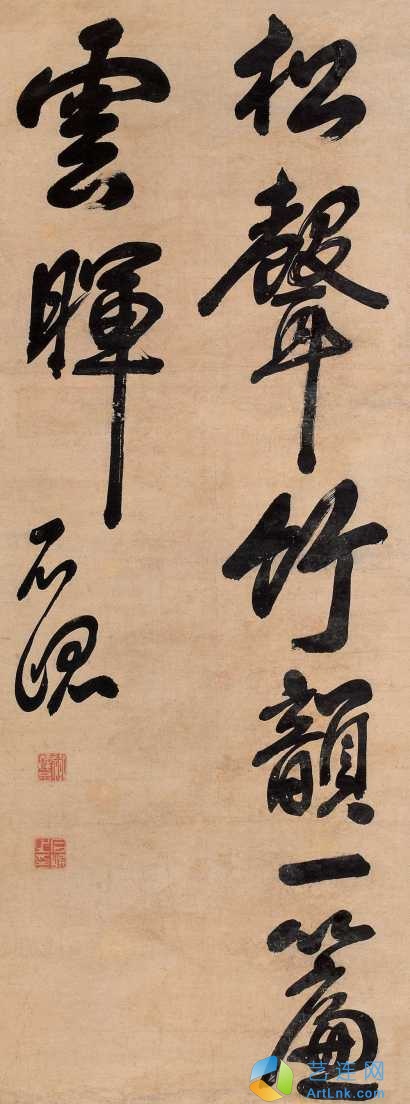 松聲竹韻一簾
雲暉
石
艺连网
ArtLnk.com